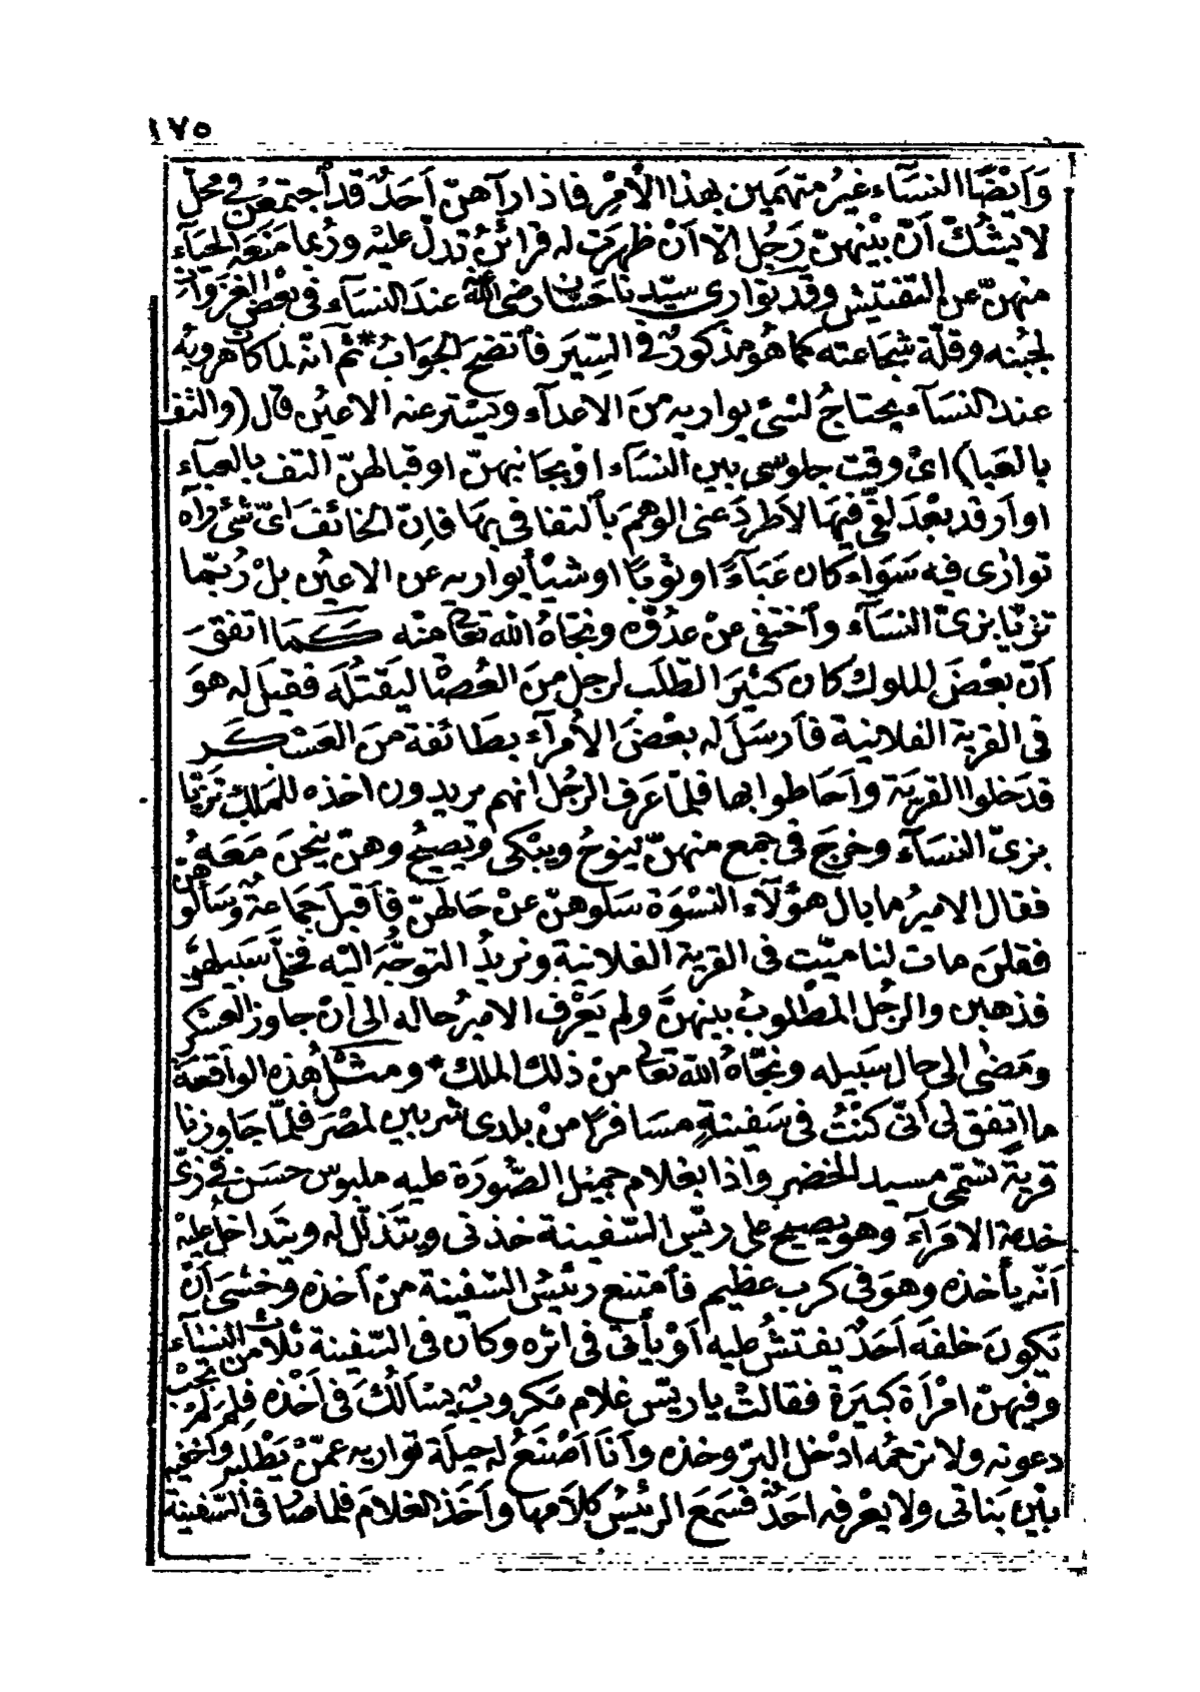 ١٧٥
وَأيْضًا النسَآء غيرُ متهمين بهذا الأمْرِ فاذا رآهنّ اَحَدٌ قد أجتمعْن في محلّ
لا يشُكّ اَنّ بيْنهنّ رَجُل الّا اَنْ ظهرَت له قرائنُ تدلّ عليْه ورُبما منَعَه الحيَاء
منهنّ عن التفتيش وقد توارى سيّدنا حَسّان رضى الله عند النسَآء فى بعض الغزوات
لجبْنه وقلّة شجاعته كما هُو مذكورٌ في السِيَر فأتضح الجوَابُ * ثم آنّه لما كان هروبُه
عند النسَآء يحتاجُ لشئ يواريه منَ الاعدآء ويستر عنه الاعيُن قال (والتف
بالعَبا) اىْ وقت جلوسى بين النسَآء اوْ بجانبهنّ او قبالهنّ التف بالعبآء
او ارقد بعْدَ لفّى فيهَا لاَطردَ عنى الوهمَ بألتفافى بهَا فاِنّ الخائفَ اىّ شئ رآه
توارٰى فيه سَوَاء كان عَبَآءً او ثوبًا او شيْأ يواريه عن الاعيُن بلْ رُبّما
تزيّا بزىّ النسَآء وأختفى عنْ عدُوّه ونجّاهُ الله تعالى منْه كَمَا اتفقَ
اَنّ بعْضَ الملوك كان كثيرَ الطّلَب لرجل منَ العُصَا ليَقتُلَه فقيل له هوَ
فى القرية الفلانية فأرسَلَ له بعْضَ الأمرآء بطَائفة منَ العَسْكَر
فدَخلوا القريَة واَحَاطوا بها فلمّا عَرف الرجُل انهم مريدون اخذه للمَلك تزيّا
بزىّ النسَآء وخرَجَ فى جمع منهنّ ينوحُ ويبْكى ويَصيحُ وهنّ ينحْنَ مَعَه
فقال الاميرُ ما بال هؤلآء النسْوَة سَلوهنّ عنْ حَالهنّ فأقبَل جَماعَةٌ وسَألوهنّ
فقلنَ مات لنا ميّت فى القرية الفلانية ونريدُ التوجّهَ اليْه فخلّى سَبيلهنّ
فذهبن والرجُل المَطلوبُ بينهنَّ ولم يَعْرف الاميرُ حاله الى انْ جاوز العسْكر
ومَضٰى الى حال سَبيله ونجّاهُ الله تعالى منْ ذلك الملك * ومثْلُ هٰذه الوَاقعَة
ما اتفق لى اَنّى كنْتُ فى سَفينةٍ مسَافرًا منْ بلدى شربين لمصْرَ فلمّا جَاوزنا
قريةً تسَمّى مسيد الخضر واذا بغلام جميْل الصُّورَة عليه ملبوس حسَن فى زىّ
خدمة الامرَآء وهو يصيح على ريّس السّفينة خذنى ويتذلّل له ويتدَاخلُ عليْه
اَنّه يأخذه وهوَ فى كرب عظيم فأمتنع رئيسُ السّفينة منْ أخذه وخشَى اَنْ
تكونَ خلفَه اَحَدٌ يفتشُ عليه اَوْ يأتى فى اثره وكان فى السّفينة ثلاث من النسَآء
وفيهنّ امْرأة كبيرَة فقالتْ يا ريّس غلام مكروبٌ يسْألكَ فى أخْذه فلِمَ لمْ تجبْ
دعوته ولا ترحَمُه ادْخل البرّ وخذه واَنَا اَصْنَعُ له حيلَة تواريه عمّنْ يَطْلبه واَخفيه
بيْن بَناتى ولا يعْرفه احَدٌ فسَمعَ الرئيسُ كلاَمها واَخَذ الغلاَمَ فلما صَار فى السّفينة